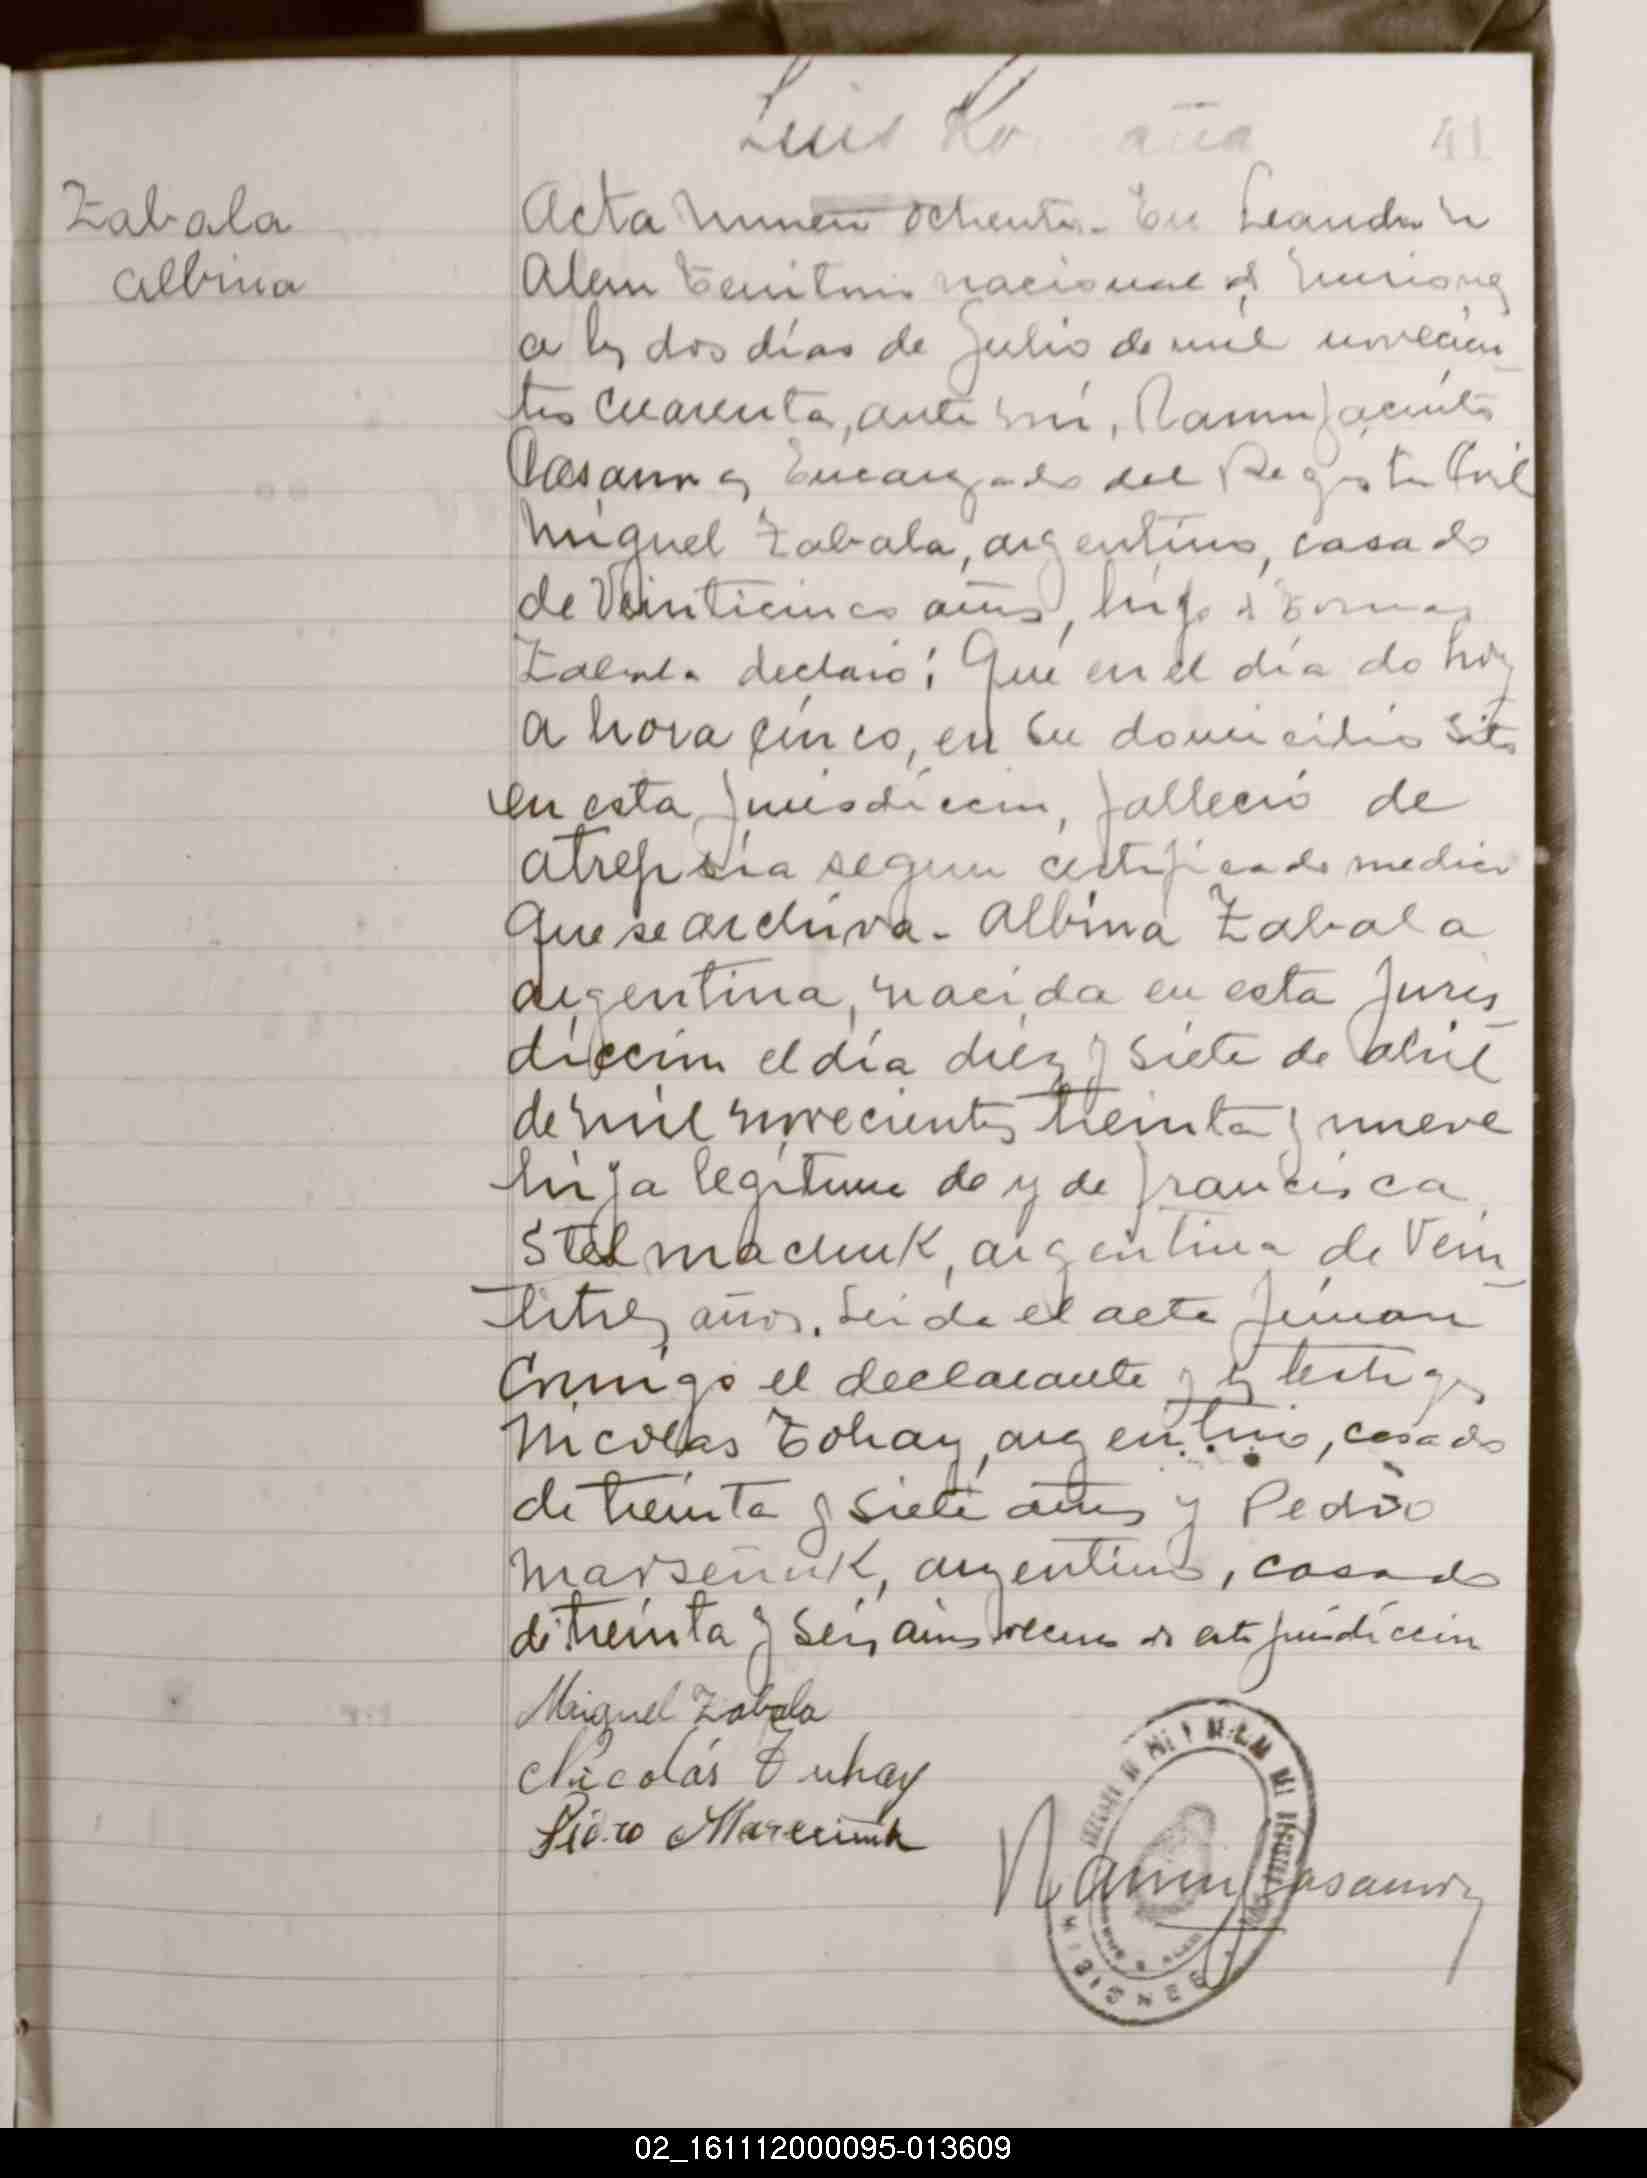 Luis
41
Zabala
Albina
Acta numero ochenta. En Leandro N
Alem Territorio nacional de Misiones
a los dos días de Julio de mil novecien
tos cuarenta, ante mí, Ramon Jacinto
Casanova, Encargado del Registro Civil
Miguel Zabala, argentino, casado
de Veinticinco años, hijo de Tomas
Zabala declaró: Que en el día de hoy
a hora cinco, en su domicilio sito
en esta Jurisdiccion, falleció de
atrepsia segun certificado medico
que se archiva. Albina Zabala
argentina, nacida en esta Juris
diccion el día diez y siete de abril
de mil novecientos treinta y nueve
hija legitima de y de Francisca
Stelmachuk, argentina de Vein
titres años. Leida el acta firman
Conmigo el declarante y los testigos
Nicolas Tohay, argentino, casado
de treinta y siete años y Pedro
Marseñuk, argentino, casado
de treinta y seis años vecinos de esta jurisdiccion
Miguel Zabala
Nicolás Tuhay
Pedro
Ramon J Casanova
MISIONES
02_161112000095-013609